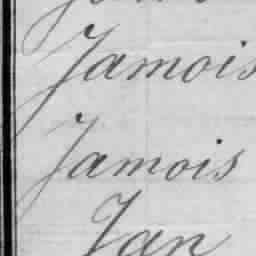 Jamois
Jamois
Jan